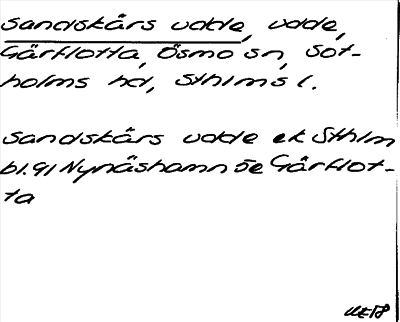 Sandskårs udde, udde,
Gårflotta, Ösmo sn, Sot-
holms hd, Sthlms l.
Sandskårs udde ek Sthlm
bl. 91 Nynäshamn 5e Gårflot-
ta